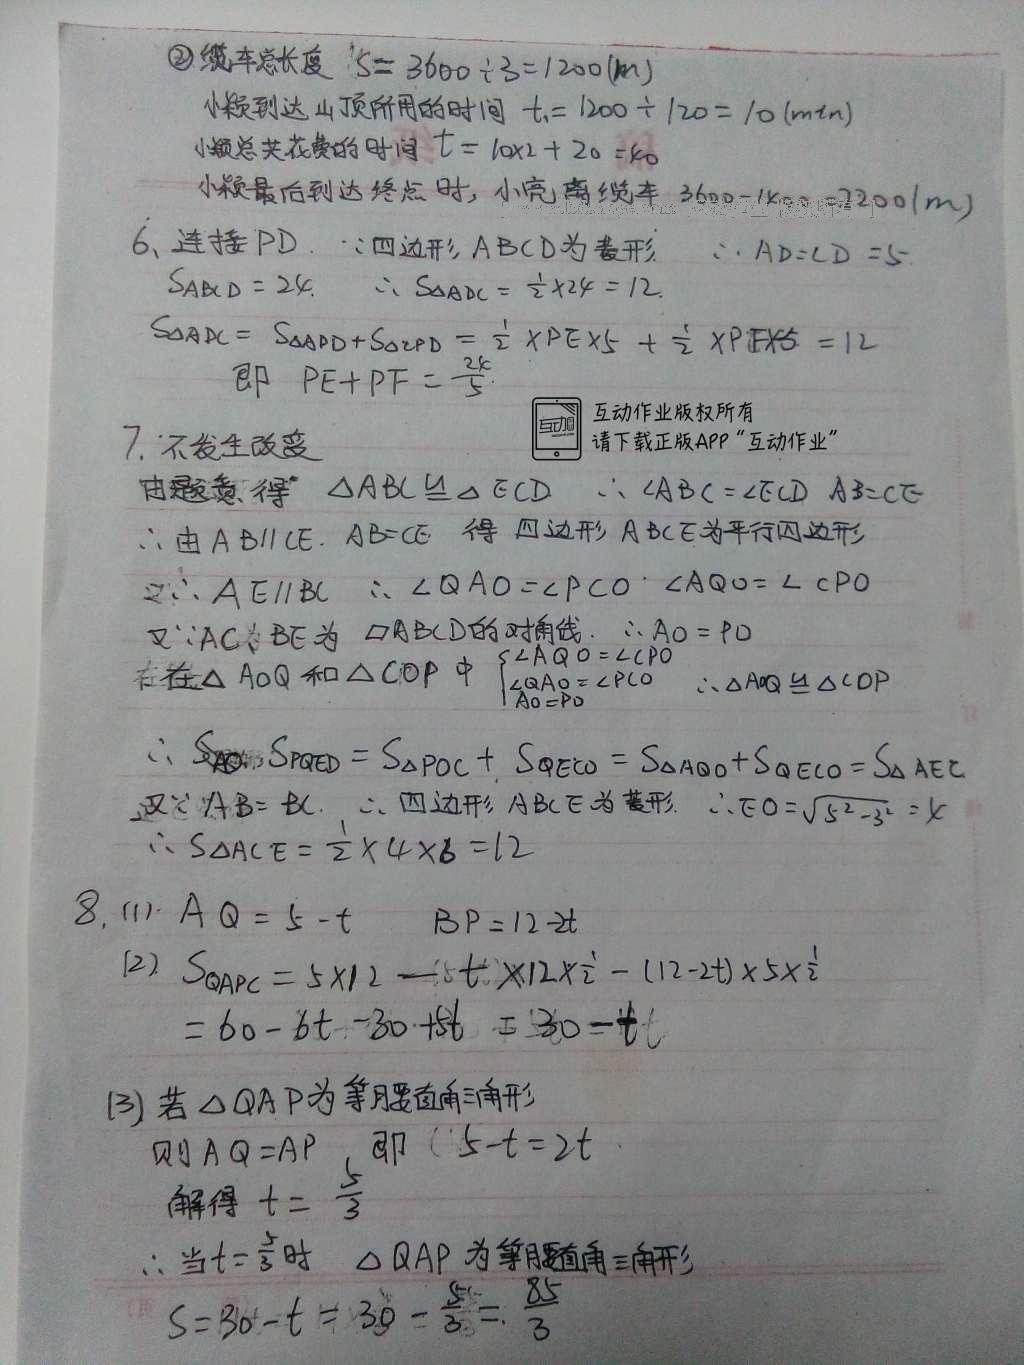 ②缆车总长度 S=3600÷3=1200(m)
小颖到达山顶所用的时间 t₁=1200÷120=10(min)
小颖总共花费的时间 t=10×2+20=40
小颖最后到达终点时,小亮离缆车 3600-1400=2200(m)
6、连接PD. ∵四边形ABCD为菱形 ∴AD=CD=5
SABCD=24. ∴S△ADC=½×24=12.
S△ADC=S△APD+S△CPD=½×PE×5+½×PF×5=12
即 PE+PF=24/5.
互动作业版权所有
请下载正版APP“互动作业”
7、不发生改变
由题意得 △ABC≌△ECD ∴∠ABC=∠ECD AB=CE
∴由AB//CE. AB=CE 得四边形ABCE为平行四边形
又∵AE//BC ∴∠QAO=∠PCO ∠AQO=∠CPO
又∵AC、BE为▱ABCD的对角线. ∴AO=PO
在△AOQ和△COP中 {∠AQO=∠CPO ∠QAO=∠PCO AO=PO ∴△AOQ≌△COP
∴ SPQED=S△POC+SQECO=S△AQO+SQECO=S△AEC
又∵AB=BC. ∴四边形ABCE为菱形. ∴EO=√5²-3²=4
∴S△ACE=½×4×6=12
8、(1). AQ=5-t BP=12-2t
(2) SQAPC=5×12-t×12×½-(12-2t)×5×½
=60-6t-30+5t=30-t
(3)若△QAP为等腰直角三角形
则AQ=AP,即 5-t=2t
解得 t=5/3
∴当t=5/3时 △QAP为等腰直角三角形
S=30-t=30-5/3=85/3